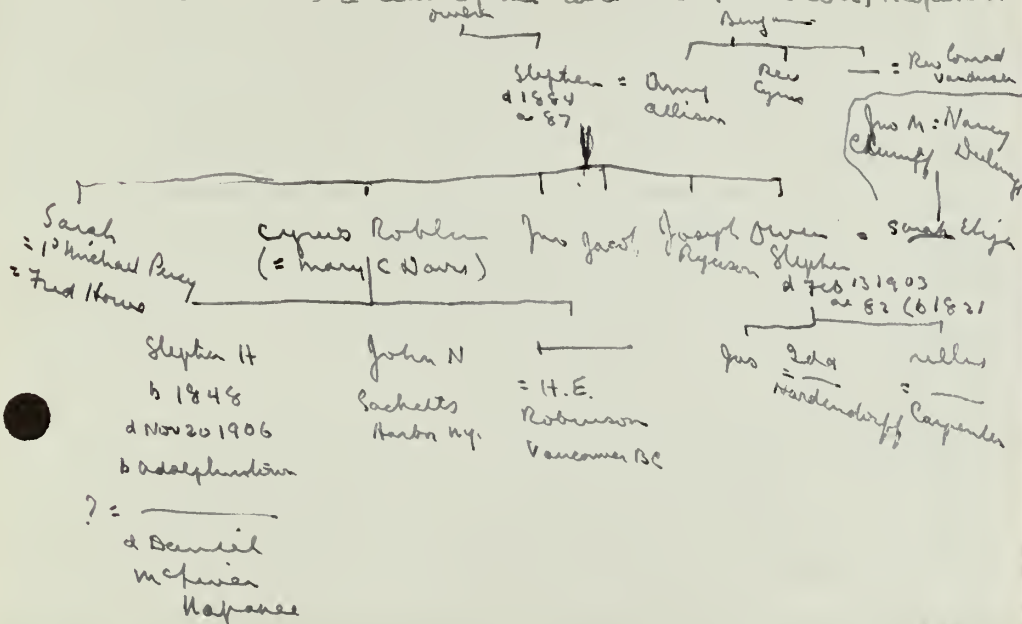 Owen
Stephen = Amy Allison
d 1884
ae 87
Rev Cyrus
= Rev Conrad Vandusen
Jno M : Nancy
Sarah
= 1st Michael Percy
= Fred
Cyrus Roblin
(= Mary C Davis)
Jno
Jacob
Joseph Ryerson
Owen Stephen
= Sarah Eliza
d Feb 13 1903
ae 82 (b 1821
Stephen H
b 1848
d Nov 20 1906
b Adolphustown
? =
d Daniel
Napanee
John N
Sacketts
Harbor NY.
= H.E.
Robinson
Vancouver BC
Jas
Ida
= Hardendorff
Nellie
= Carpenter